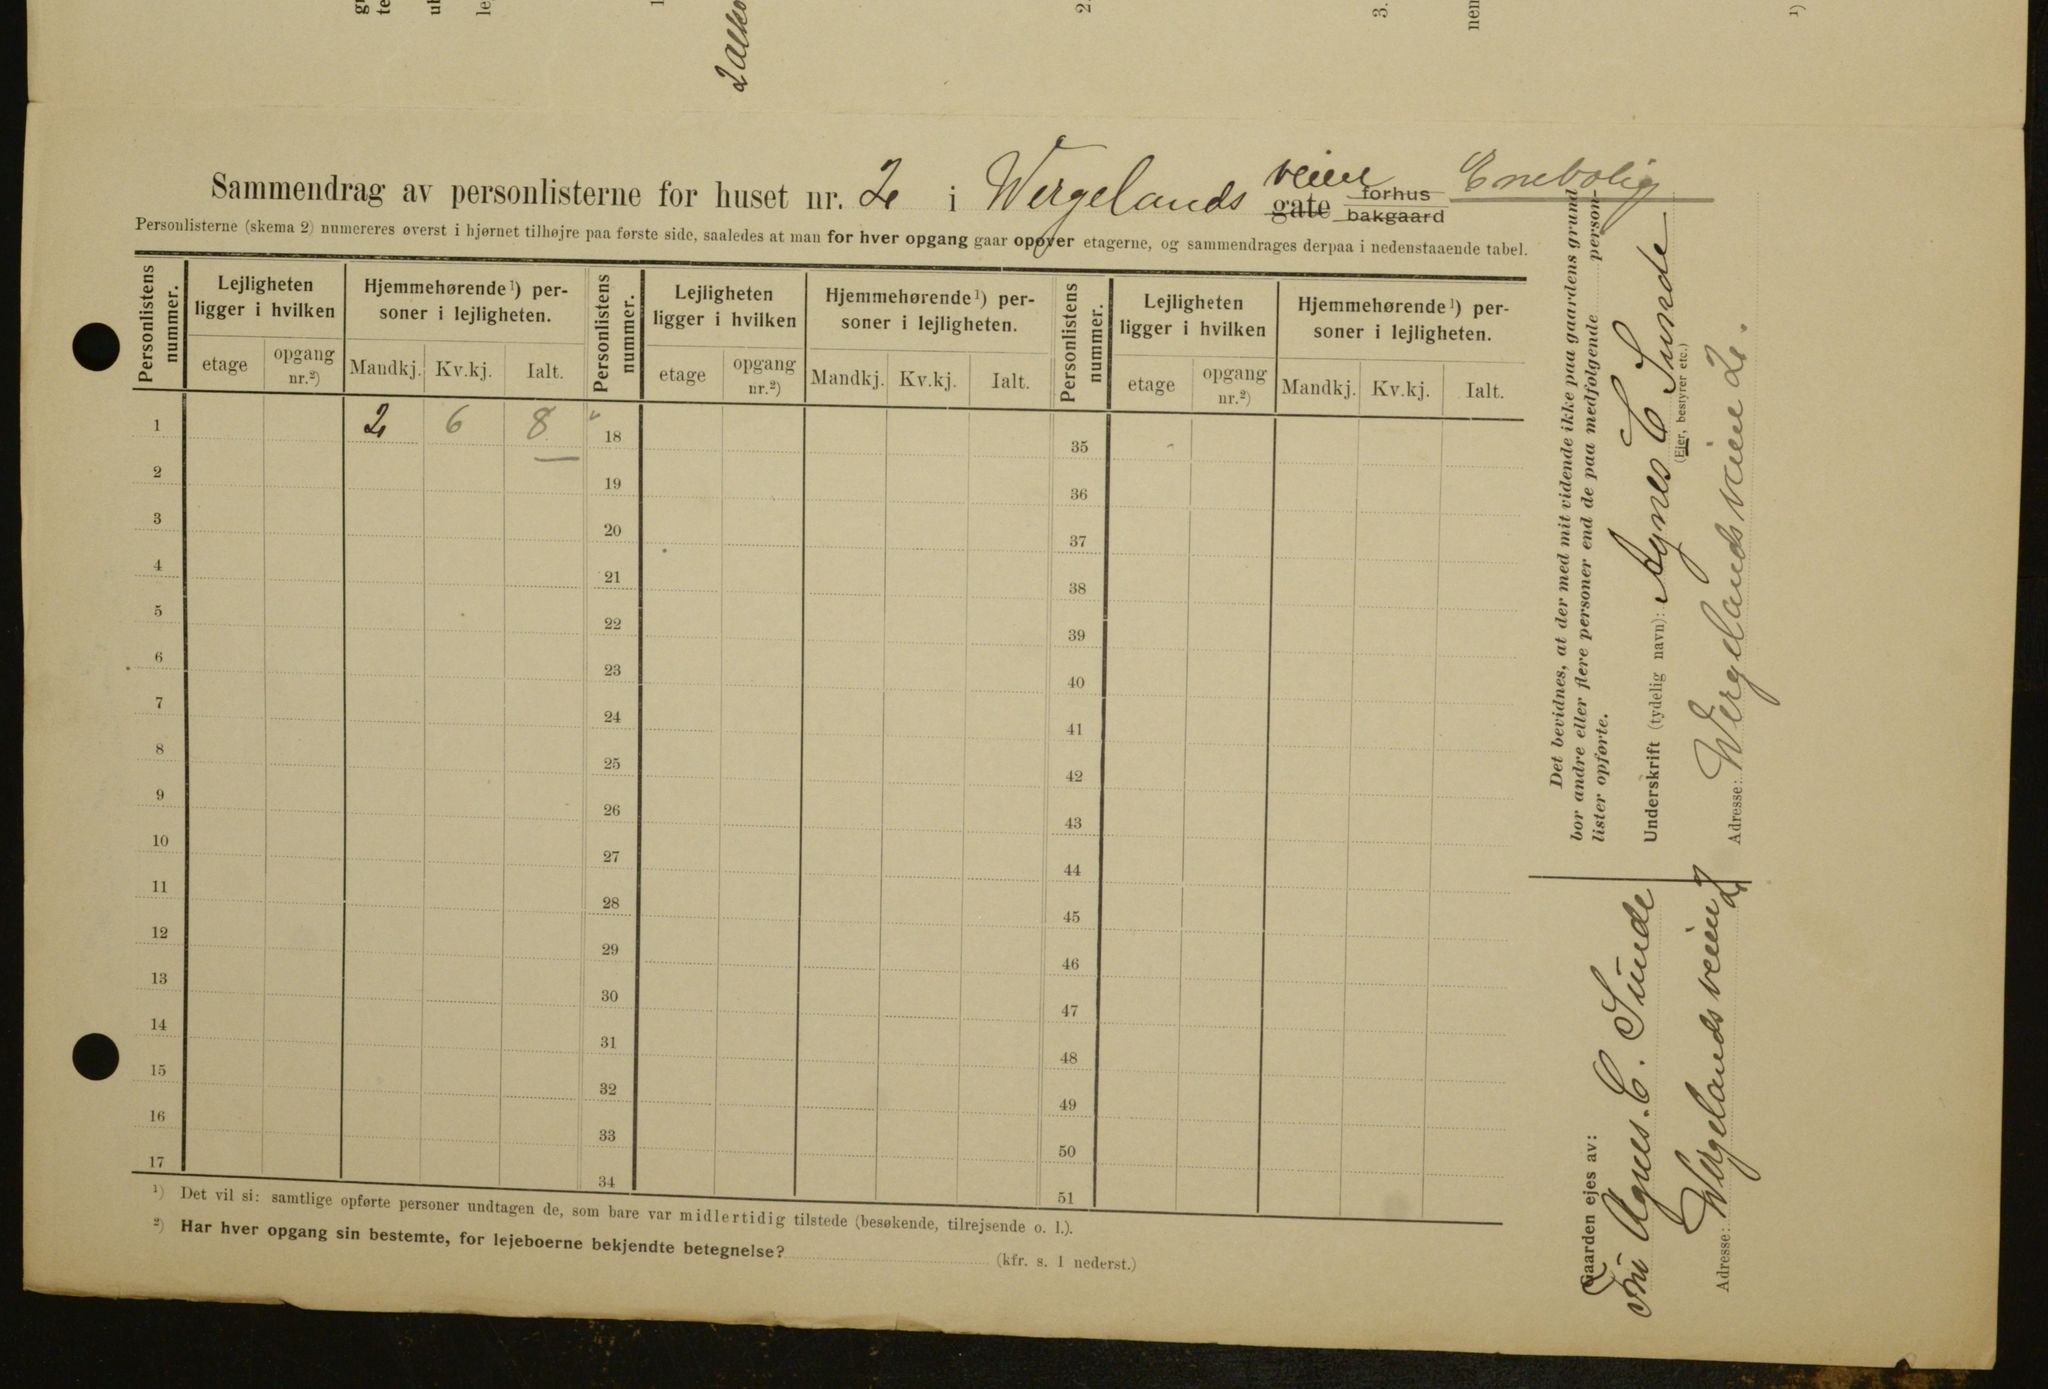 2 alko
Sammendrag av personlisterne for huset nr. 2 i Wergelands veien gate forhus bakgaard Enebolig
Personlisterne (skema 2) numereres øverst i hjørnet tilhøjre paa første side, saaledes at man for hver opgang gaar opover etagerne, og sammendrages derpaa i nedenstaaende tabel.
Personlistens nummer. Lejligheten ligger i hvilken Hjemmehørende ¹) personer i lejligheten. Personlistens nummer. Lejligheten ligger i hvilken Hjemmehørende ¹) personer i lejligheten. Personlistens nummer. Lejligheten ligger i hvilken Hjemmehørende ¹) personer i lejligheten.
etage opgang nr.²) Mandkj. Kv.kj. Ialt. etage opgang nr.²) Mandkj. Kv.kj. Ialt. etage opgang nr.²) Mandkj. Kv.kj. Ialt.
1 2 6 8 18 35
2 19 36
3 20 37
4 21 38
5 22 39
6 23 40
7 24 41
8 25 42
9 26 43
10 27 44
11 28 45
12 29 46
13 30 47
14 31 48
15 32 49
16 33 50
17 34 51
¹) Det vil si: samtlige opførte personer undtagen de, som bare var midlertidig tilstede (besøkende, tilrejsende o. l.).
²) Har hver opgang sin bestemte, for lejeboerne bekjendte betegnelse? (kfr. s. 1 nederst.)
Det bevidnes, at der med mit vidende ikke paa gaardens grund
bor andre eller flere personer end de paa medfølgende person-
lister opførte.
Underskrift (tydelig navn): Agnes C Sunde
(Ejer, bestyrer etc.)
Adresse: Wergelandsveien 2.
Gaarden ejes av:
Fru Agnes. C. Sunde
Adresse: Wergelandsveien 2